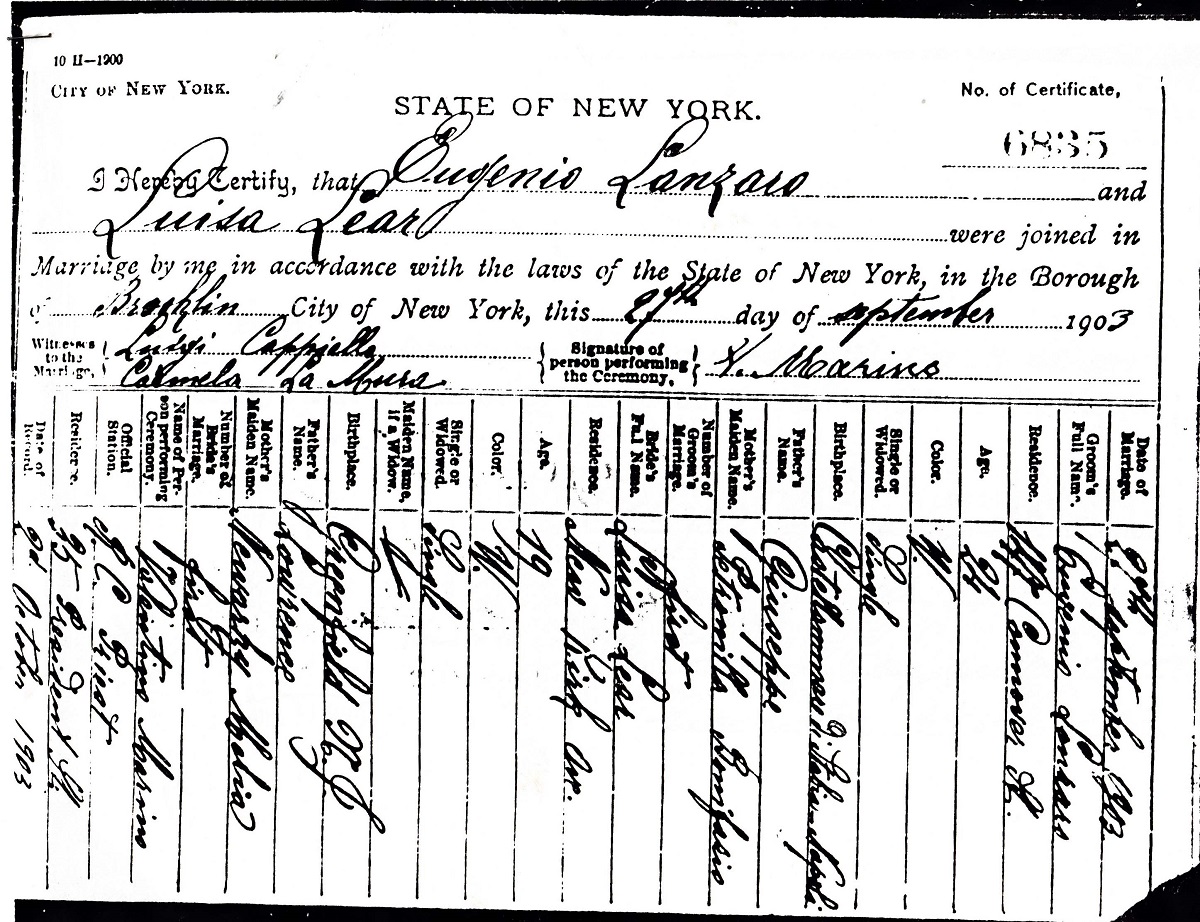 10 II—1900
CITY OF NEW YORK.
STATE OF NEW YORK.
No. of Certificate,
6835
I Hereby Certify, that Eugenio Lanzaro and
Luisa Lear were joined in
Marriage by me in accordance with the laws of the State of New York, in the Borough
of Brooklin City of New York, this 27th day of september 1903
Witnesses to the Marriage, Luigi Cappiello
Carmela La Mura
Signature of person performing the Ceremony, V. Marino
Date of Marriage. 27th september 1903
Groom's Full Name. Eugenio Lanzaro
Residence. Connover St.
Age.
Color. W
Single or Widowed. Single
Birthplace. Castellammare di Stabia Napoli
Father's Name. Giuseppe
Mother's Maiden Name. Petronilla Bonifasio
Number of Groom's Marriage. First
Bride's Full Name. Luisa Lear
Residence. New Kirk Av.
Age. 19
Color. W.
Single or Widowed. Single
Maiden Name, if a Widow.
Birthplace. N J
Father's Name. Lourence
Mother's Maiden Name.
Number of Bride's Marriage. First
Name of Person performing Ceremony. Valentino Marino
Official Station. R. C. Priest
Residence. President St.
Date of Record. 2d October 1903